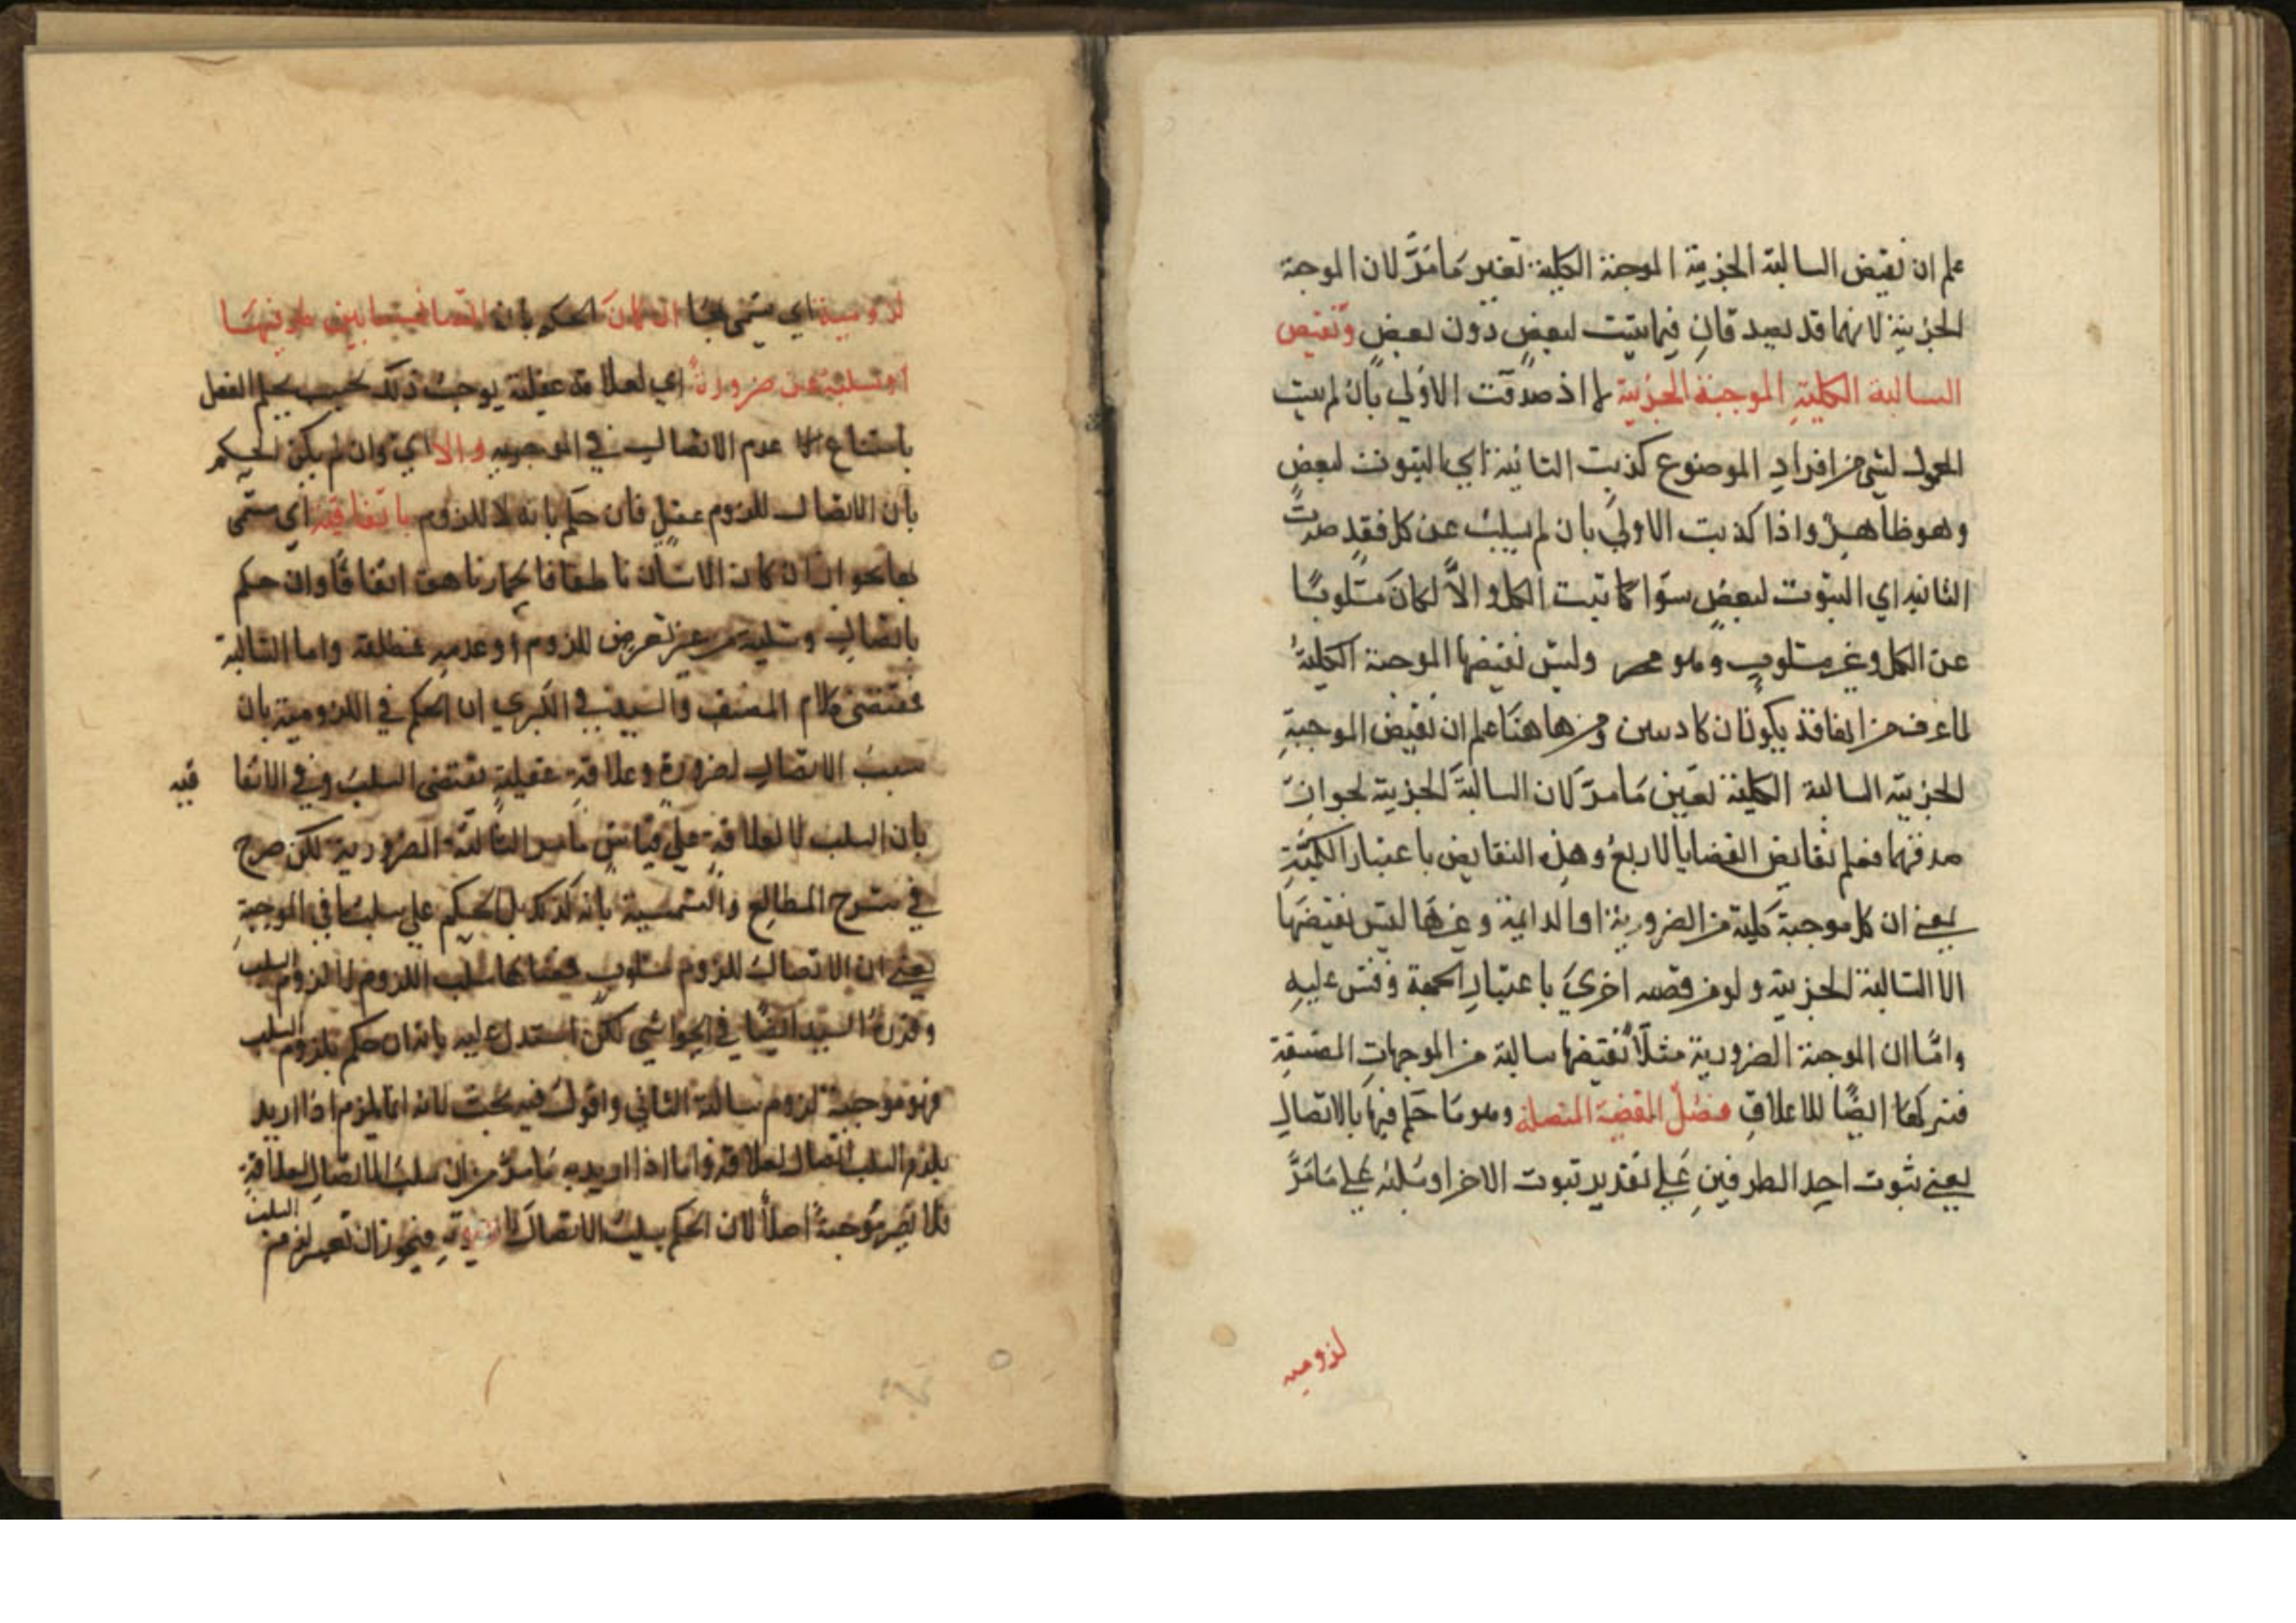 علم ان نقيض السالبة الجزيية الموجبة الكلية بغير مَا مَرَّ لان الموجبة
الجزيية لانهما قد تصدقان فيما يثبت لبعضٍ دون بعضٍ ونقيض
السالبة الكليةِ الموجبة الجزئية لما اذ صدقت الاولي بان لم يثبت
المحمول لشي من افرادِ الموضوع كذبت الثانية اي الثبوت لبعضٍ
وهو ظاهر واذا كذبت الاولي بان لم يسلب عن كل فقد صدقت
الثانيه اي الثبوت لبعضٍ سوا كا ثبت الكل و الاّ لكانَ مسلوبًا
عن الكل وغير مسلوبٍ وهو محر وليس نقيضها الموجبة الكليةُ
لما عرف من انها قد يكونان كادبين ومن هاهنا علم ان نقيض الموجبةِ
الجزييّه السالبة الكلية بعين مَا مرّ لان السالبةَ الجزيية لجواز
صدقهما فعلم نقايض القضايا الاربعُ وهذه النقايض باعتبار الكميَّةِ
يعني ان كل موجبة كلية من الضرورية او الدايمة وغيرها ليس نقيضهَا
الا السالبة الجزييه ولو من قضيه اخريَ باعتبار الجهة وقس عليهِ
وامّا ان الموجبة الضرورية مثلًا نقيضها سالبة من الموجهاتِ المضيقةِ
فنتركها ايضًا للاعلاقِ فصلٌ المقضية المتصلة وهو مَا حكم فيها بالاتصالِ
يعني ثبوت احد الطرفينِ عَلي تقدير ثبوت الاخر او سَلبهُ عَلي مَا مَرَّ
لزوميه
لزومية اي يسمّى بهَا ان كانَ الحكم بان اتصا ما بين طرفيهَا
او سلبه عن ضرورةٌ اي لعلاقة عقلية يوجبُ ذلك بحيب يحكم العقل
بامتناع عدم الاتصالِ في الموجبه والا اي وان لم يكن الحكم
بان الاتصال للزوم عقلٍ فان حكم بانه لا للزوم باتفاقيه اي يسمّى
بها نحو ان كان الانسان ناطقا فالحمار ناهق اتفاقًا وان حكم
باتصالٍ وسلبه من غير تعرض للزوم او عدمهِ فمطلقة واما السالبة
فمقتضى كلام المصنف والسيد في الكبري ان الحكم في اللزومية بان
سببُ الاتصالِ لضرورة وعلاقةٍ عقليةٍ تقتضى السلبُ وفي الاتفا
قيه
بان السلب لا لعلاقةٍ علي قياس ما مر السالبة الضرورية لكن صرح
في شرح المطالع والشمسية بانه كذكك بل الحكم علي سلبها في الموجبةِ
يعني ان الاتصالُ للزوم مسلوب فمعناها سلب اللزوم لا لزوم السلب
وقرره السيد ايضًا في الحواشي لكن استدل عليه بانه ان حكم بلزوم السلب
فهو موجبة لزوم سالبة الثاني واقول فيه بحث لانه انما يلزم اذا اريد
بلزوم السلب اتصال لعلاقة واما اذا اريد به مَا مرّ من ان سلبَ الاتصالِ لعلاقةٍ
فلا يَصِر موُجبةً اصلاً لان الحكم بسلبُ الاتصال فيجوز ان تعبر لزوم السلب